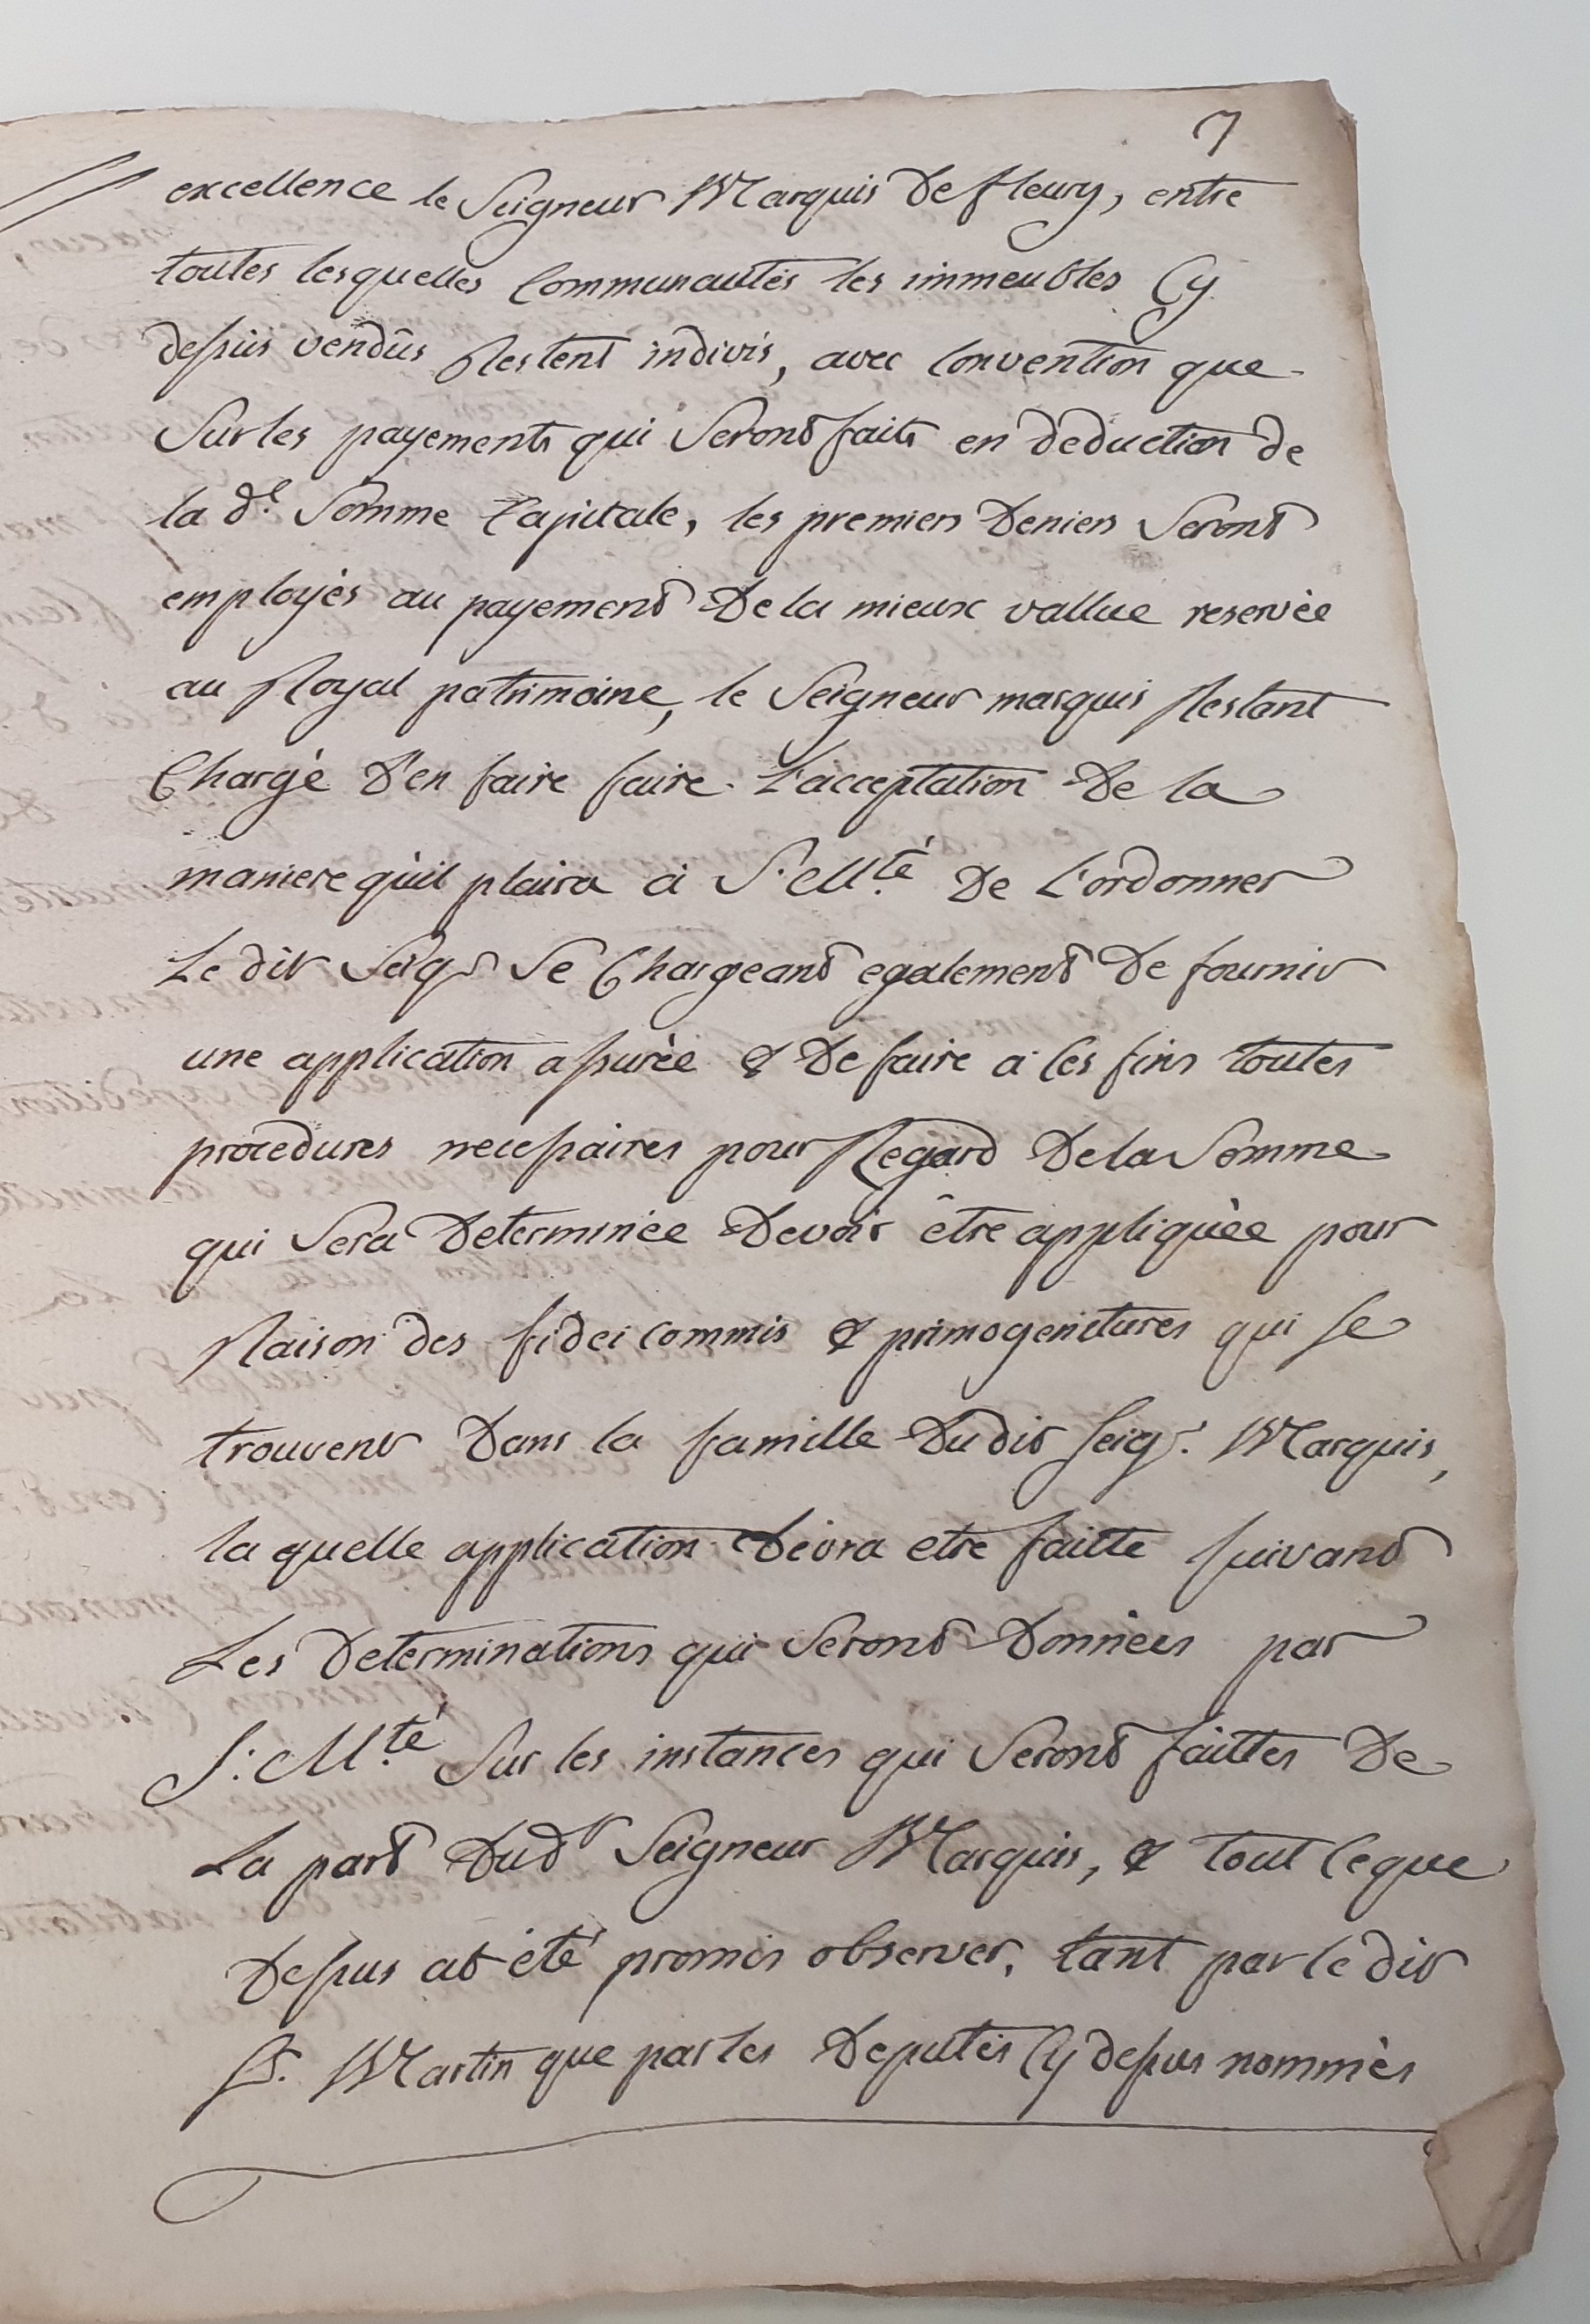 7
excellence le Seigneur Marquis De fleury, entre
toutes lesquelles Communautés les immeubles Cy
dessus vendûs Restent indivis, avec Convention que
Sur les payements qui Seront faits en deduction de
la d.e Somme Capitale, les premiers Deniers Seront
employés au payement De la mieux vallue reservée
au Royal patrimoine, le Seigneur marquis Restant
Chargé D'en faire faire L'acceptation De la
maniere qu'il plaira à S. M.té De L'ordonner
Le dit Seigr Se Chargeant egalement De fournir
une application assurée & De faire a Ces fins toutes
procedures necessaires pour Regard De la Somme
qui Sera Determinée Devoir être appliquée pour
Raison des fideicommis & primogenitures qui se
trouvent Dans la famille Dudit seigr. Marquis,
la quelle application Devra etre faitte suivant
Les Determinations qui Seront Données par
S. M.té Sur les instances qui Seront faittes De
La part Dudt Seigneur Marquis, & tout Ceque
Dessus at été promis observer, tant par le dit
Sr. Martin que par les Deputés Cy dessus nommés